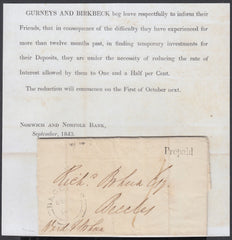 GURNEYS AND BIRKBECK beg leave respectfully to inform their
Friends, that in consequence of the difficulty they have experienced for
more than twelve months past, in finding temporary investments for
their Deposits, they are under the necessity of reducing the rate of
Interest allowed by them to One and a Half per Cent.
The reduction will commence on the First of October next.
NORWICH AND NORFOLK BANK,
September, 1843.
Prepaid
Richd
Esq
Beccles